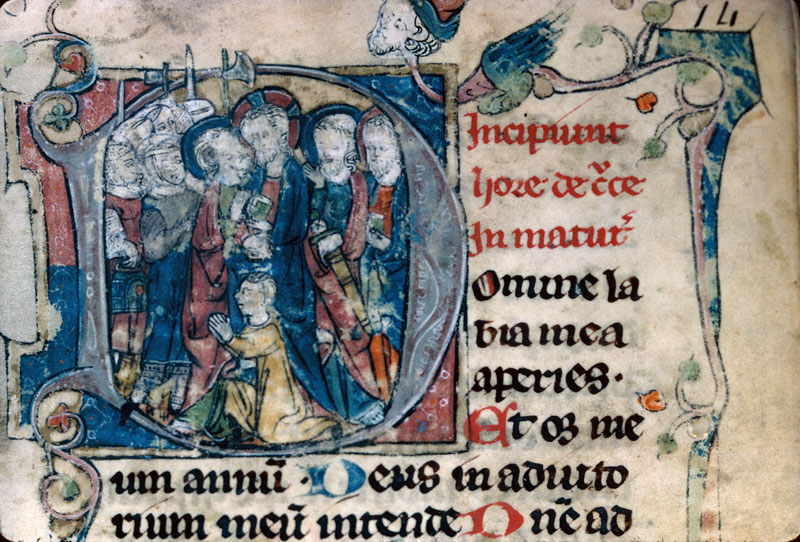 14
Incipiunt
hore de c̄ce
In matut᷑
Omine la
bia mea
aperies·
Et os me
um annū· Deus in adiuto
rium meū intende Dn̄e ad